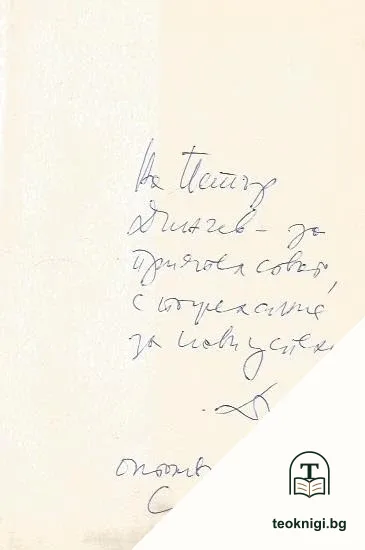 На Петър
Динчев – за
приятелството,
с пожелание
за нови успехи
Т
teoknigi.bg